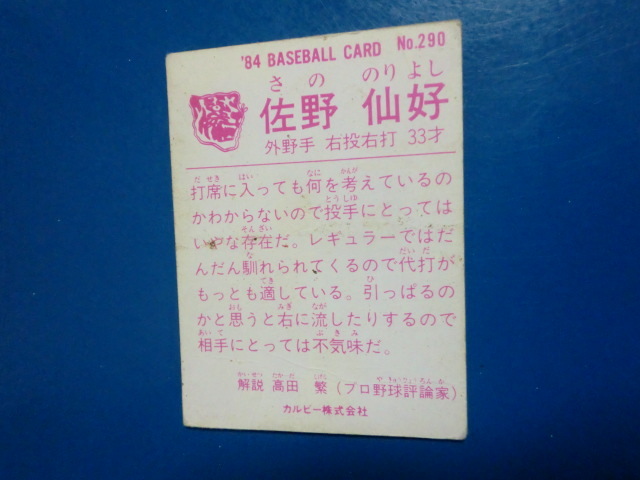 '84 BASEBALL CARD No.290
さの のりよし
佐野 仙好
外野手 右投右打 33才
打席に入っても何を考えているの
かわからないので投手にとっては
いやな存在だ。レギュラーではだ
んだん馴れられてくるので代打が
もっとも適している。引っぱるの
かと思うと右に流したりするので
相手にとっては不気味だ。
解説 高田 繁（プロ野球評論家）
カルビー株式会社